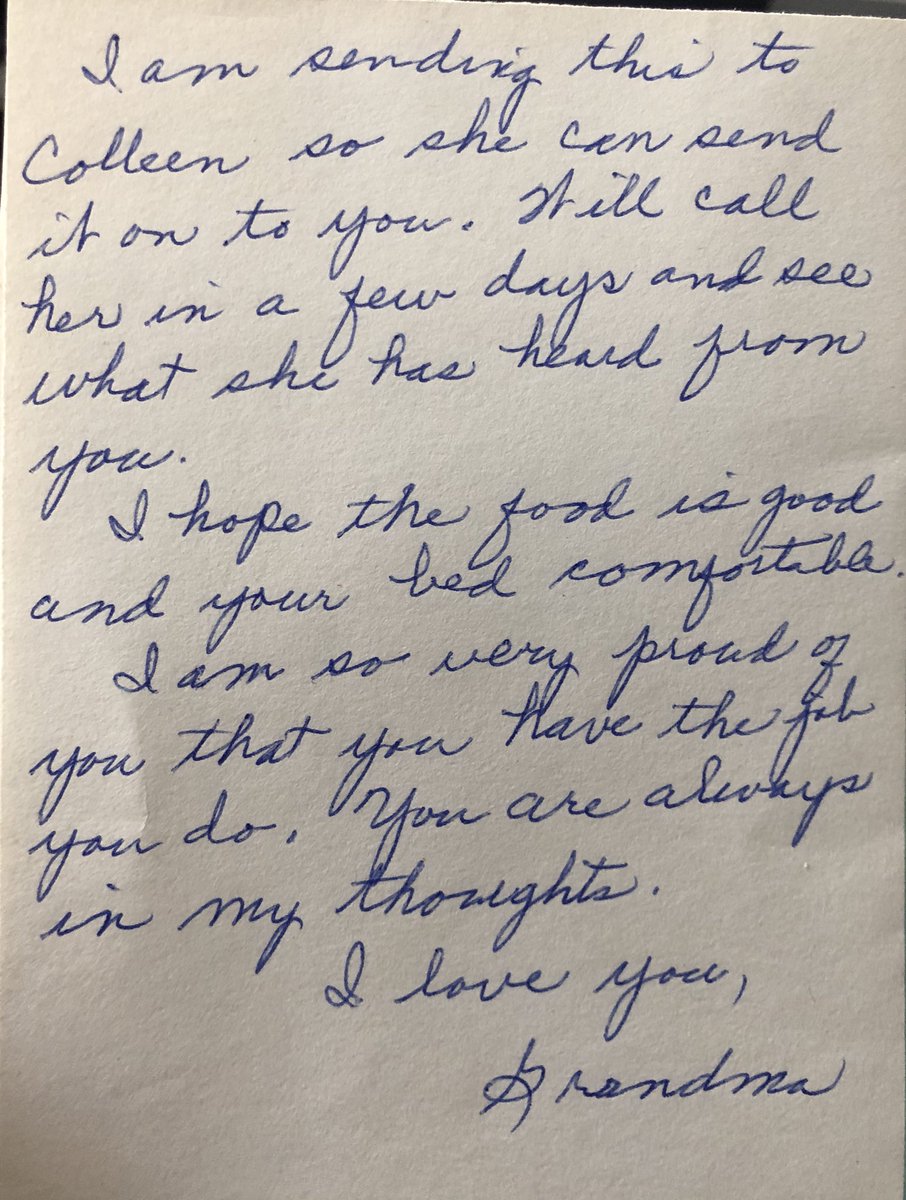 I am sending this to
Colleen so she can send
it on to you. Will call
her in a few days and see
what she has heard from
you.
I hope the food is good
and your bed comfortable.
I am so very proud of
you that you have the job
you do. You are always
in my thoughts.
I love you,
Grandma